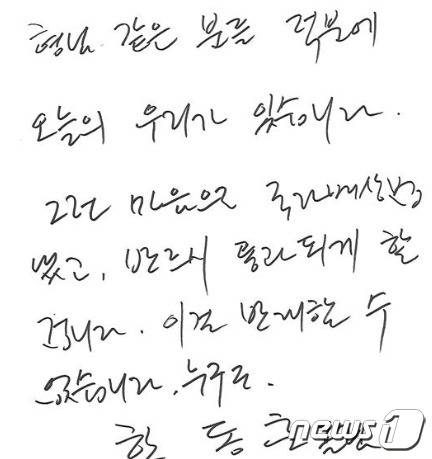 형님 같은 분들 덕분에
오늘의 우리가 있습니다.
그런 마음으로 국가배상법
냈고, 반드시 통과되게 할
겁니다. 이걸 반대할 수
없습니다. 누구도.
한 동 훈 올림
news1